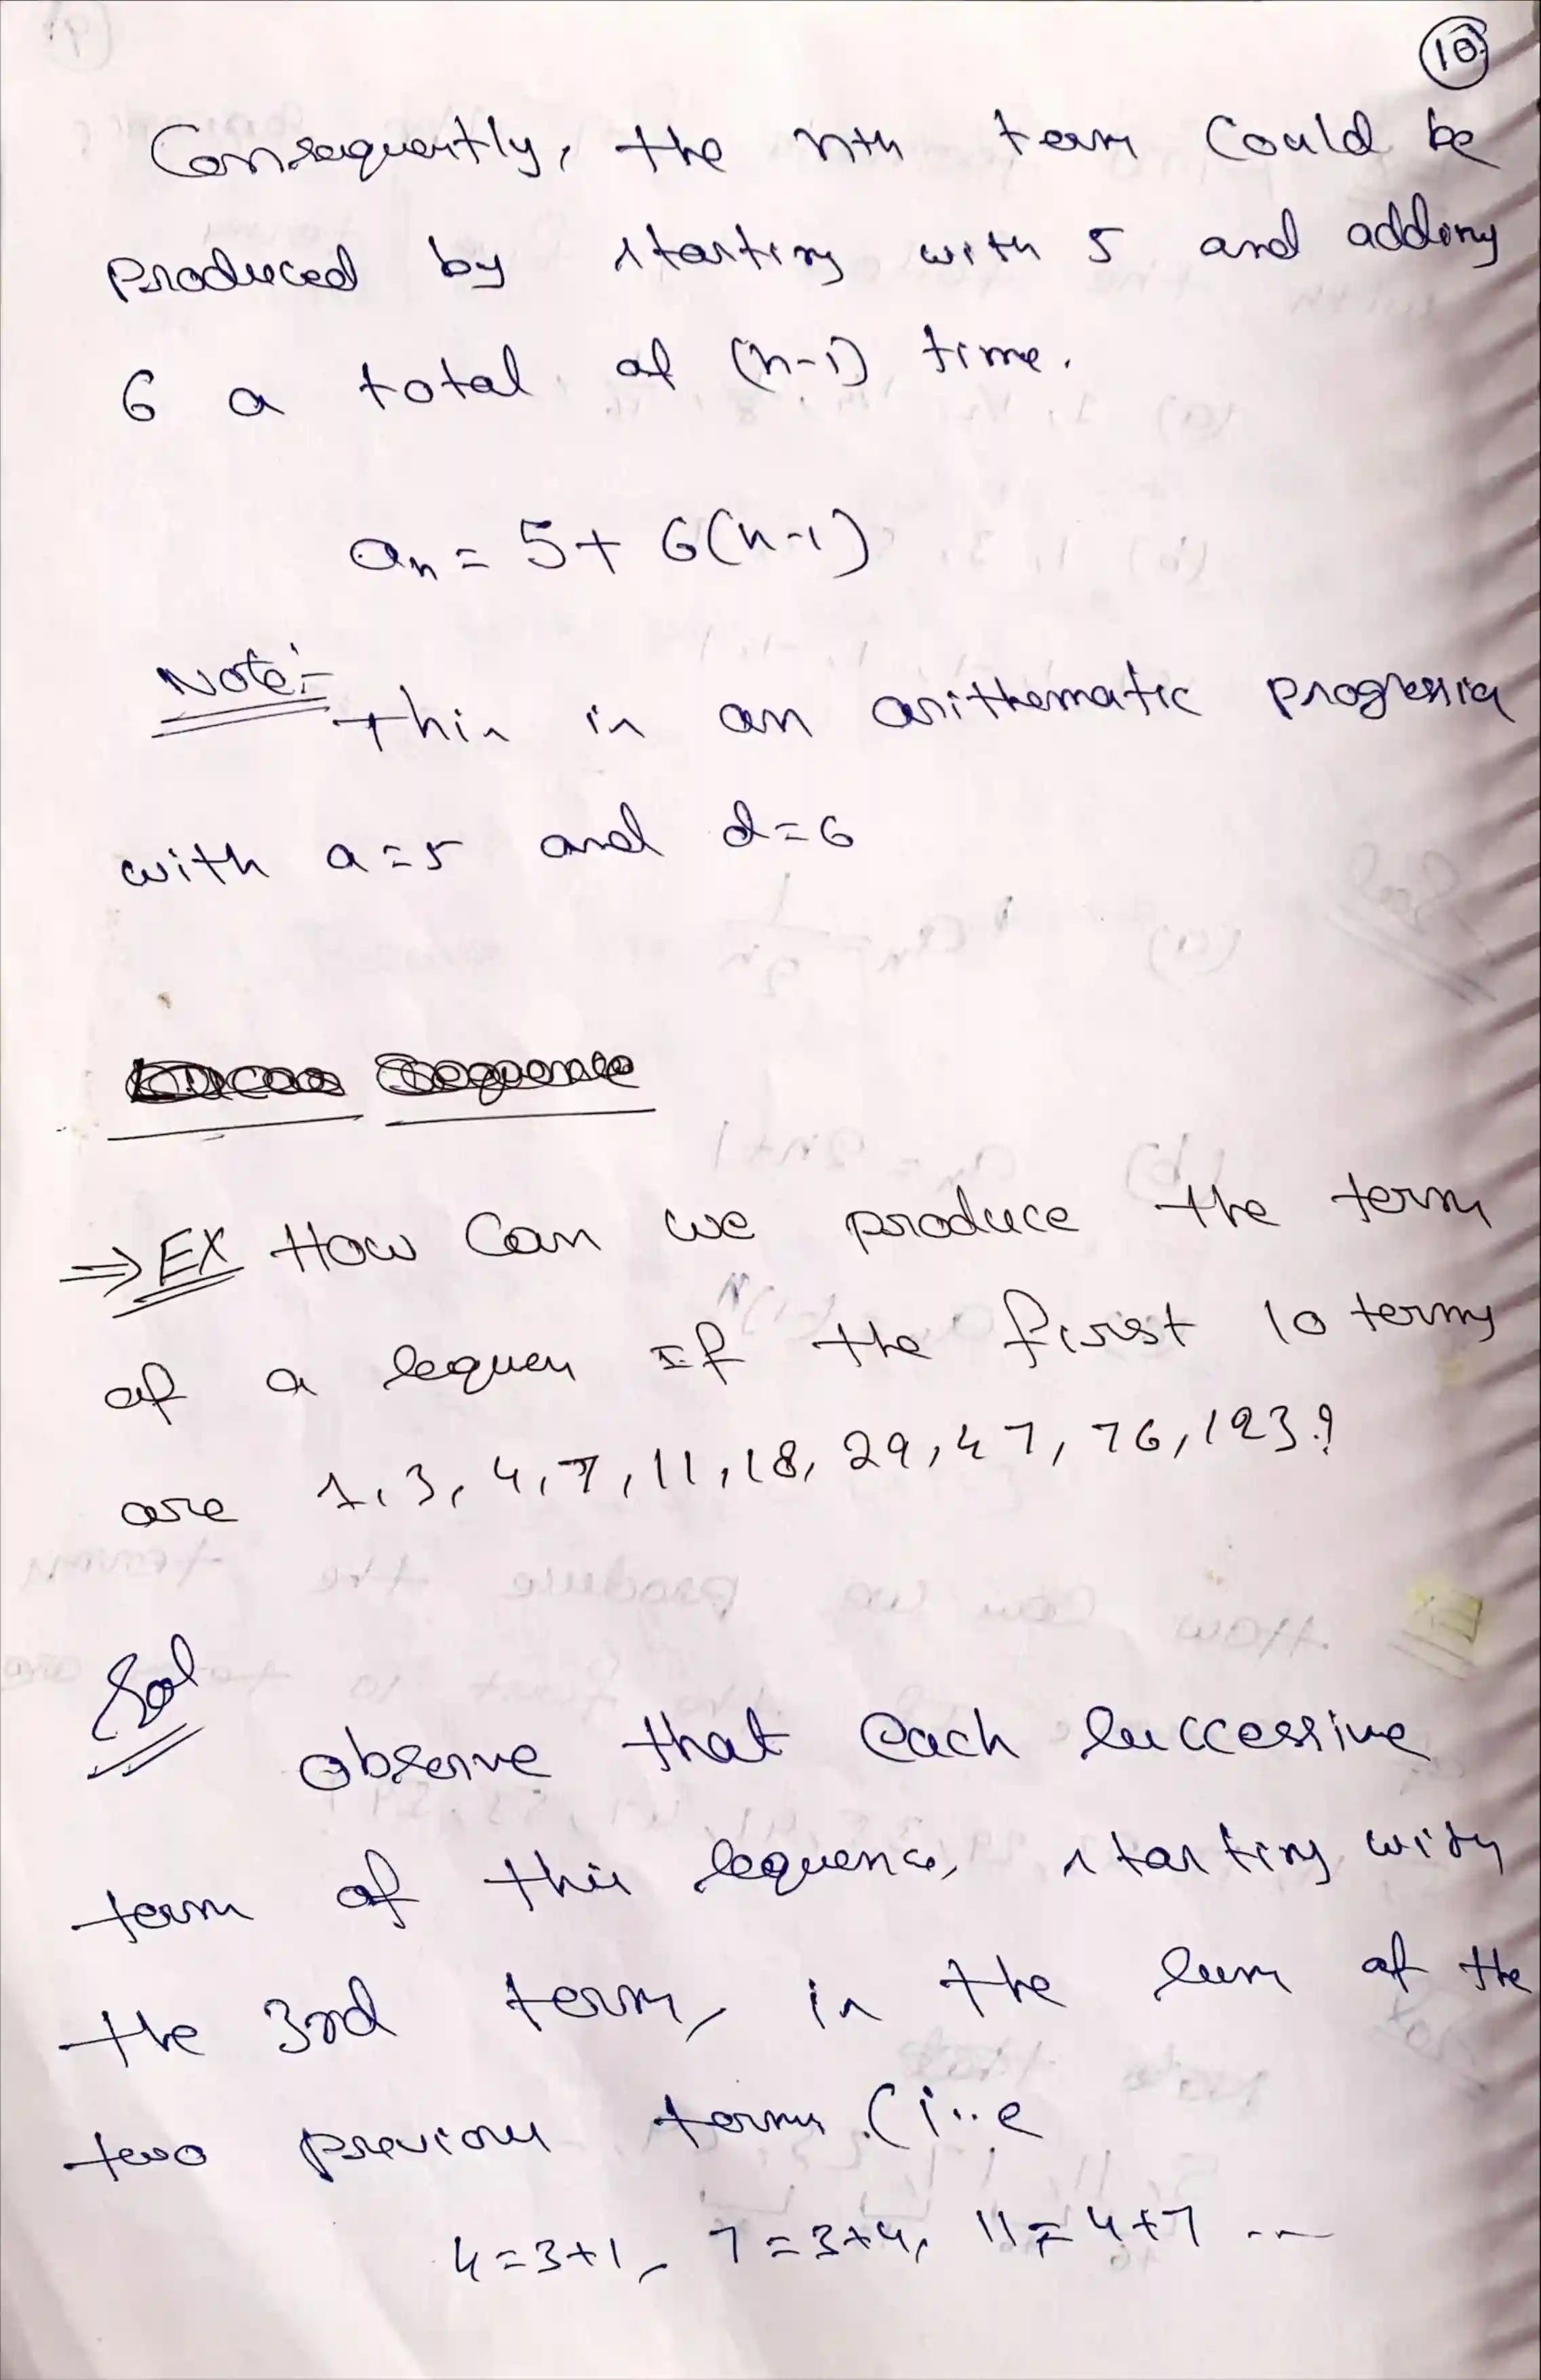 10
Consequently, the nth term could be
produced by starting with 5 and adding
6 a total of (n-1) time.
an = 5+ 6(n-1)
Note:-
This is an arithematic progression
with a=5 and d=6
Lucas Sequence
=> EX How Can we produce the term
of a sequen If the first 10 terms
are 1, 3, 4, 7, 11, 18, 29, 47, 76, 123?
Sol
observe that each successive
term of this sequence, starting with
the 3rd term, is the sum of the
two previous terms. (i.e
4=3+1, 7=3+4, 11=4+7 ...